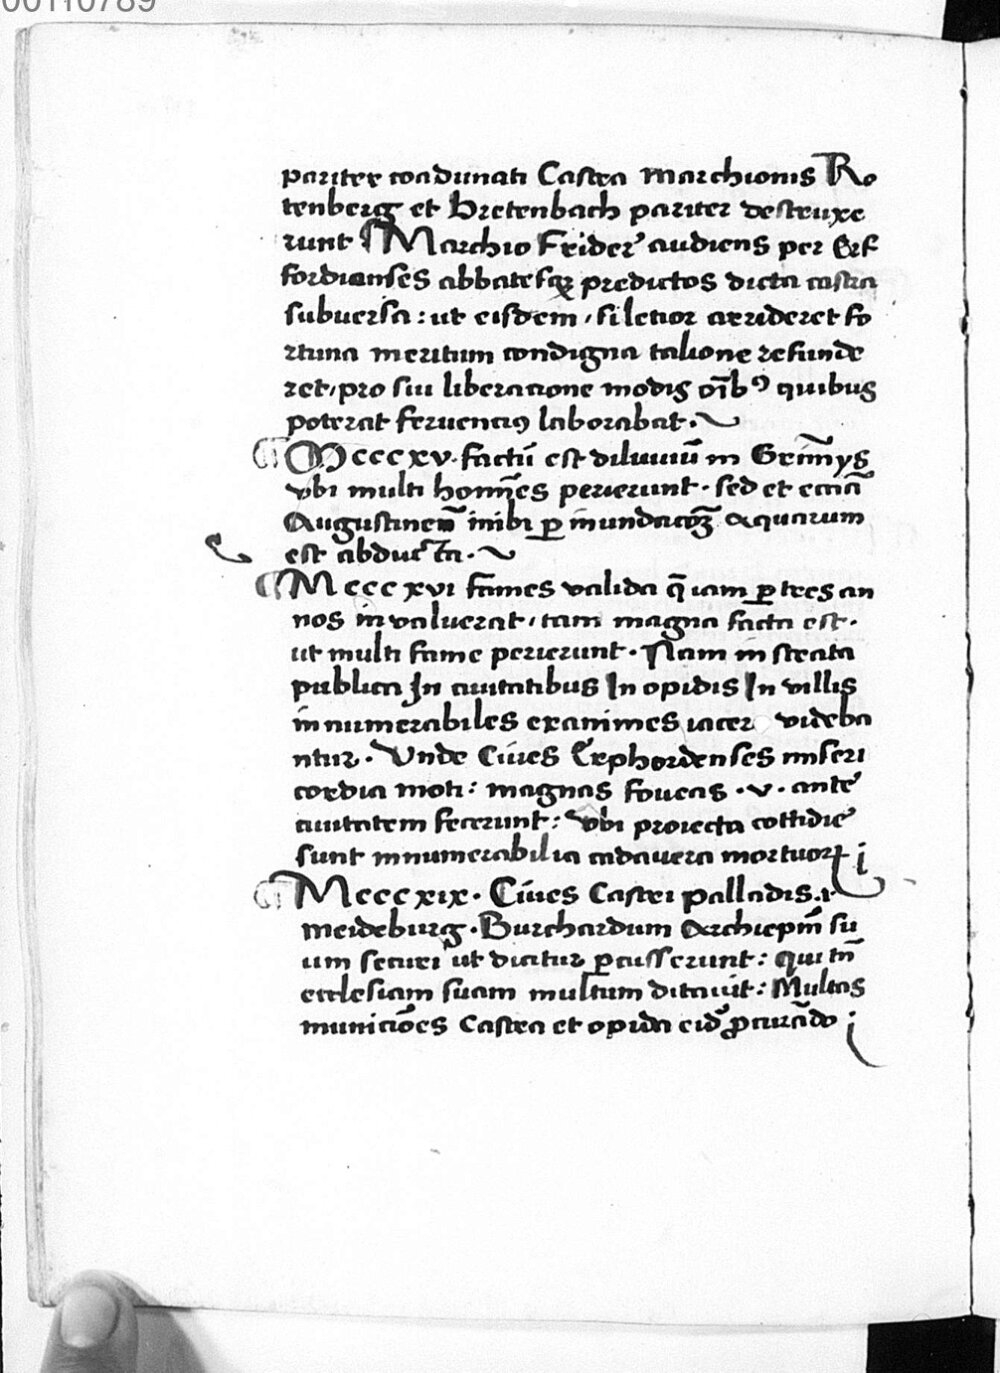 00110789
pariter coadunati Castra marchionis Ro
tenberg et Bretenbach pariter destruxe
runt ¶ Marchio Frider' audiens per Erf
fordienses abbatesqꝫ predictos dicta castra
subuersa: ut eisdem, si letior arrideret fo
rtuna meritum condigna talione refunde
ret, pro sui liberacione modis oı̄bꝰ quibus
poterat feruenciꝰ laborabat.
¶ Mcccxv. factū est diluuiū in Grim̄ys
vbi multi homīes perierunt. sed et eccīa
Augustinen̄ inibi ꝑ inundacōꝫ aquarum
est abducta.
¶ Mcccxvi fames valida q̄ iam ꝑ tres an
nos inualuerat, tam magna facta est.
ut multi fame perierunt. Nam in strata
publica In ciuitatibus In opidis In villis
innumerabiles exanimes iacer videba
ntur. Unde Ciues Erphordenses miseri
cordia moti: magnas foueas .v. ante
ciuitatem fecerunt: vbi proiecta cottidie
sunt innumerabilia cadauera mortuoꝝ
¶ Mcccxix. Ciues Castri palladis .i.
meideburg. Burchardum Archiepm̄ su
um securi ut dicitur ꝑcusserunt: qui tn̄
ecclesiam suam multum ditauit: Multas
municiōes Castra et opida eid' ꝓcurādo